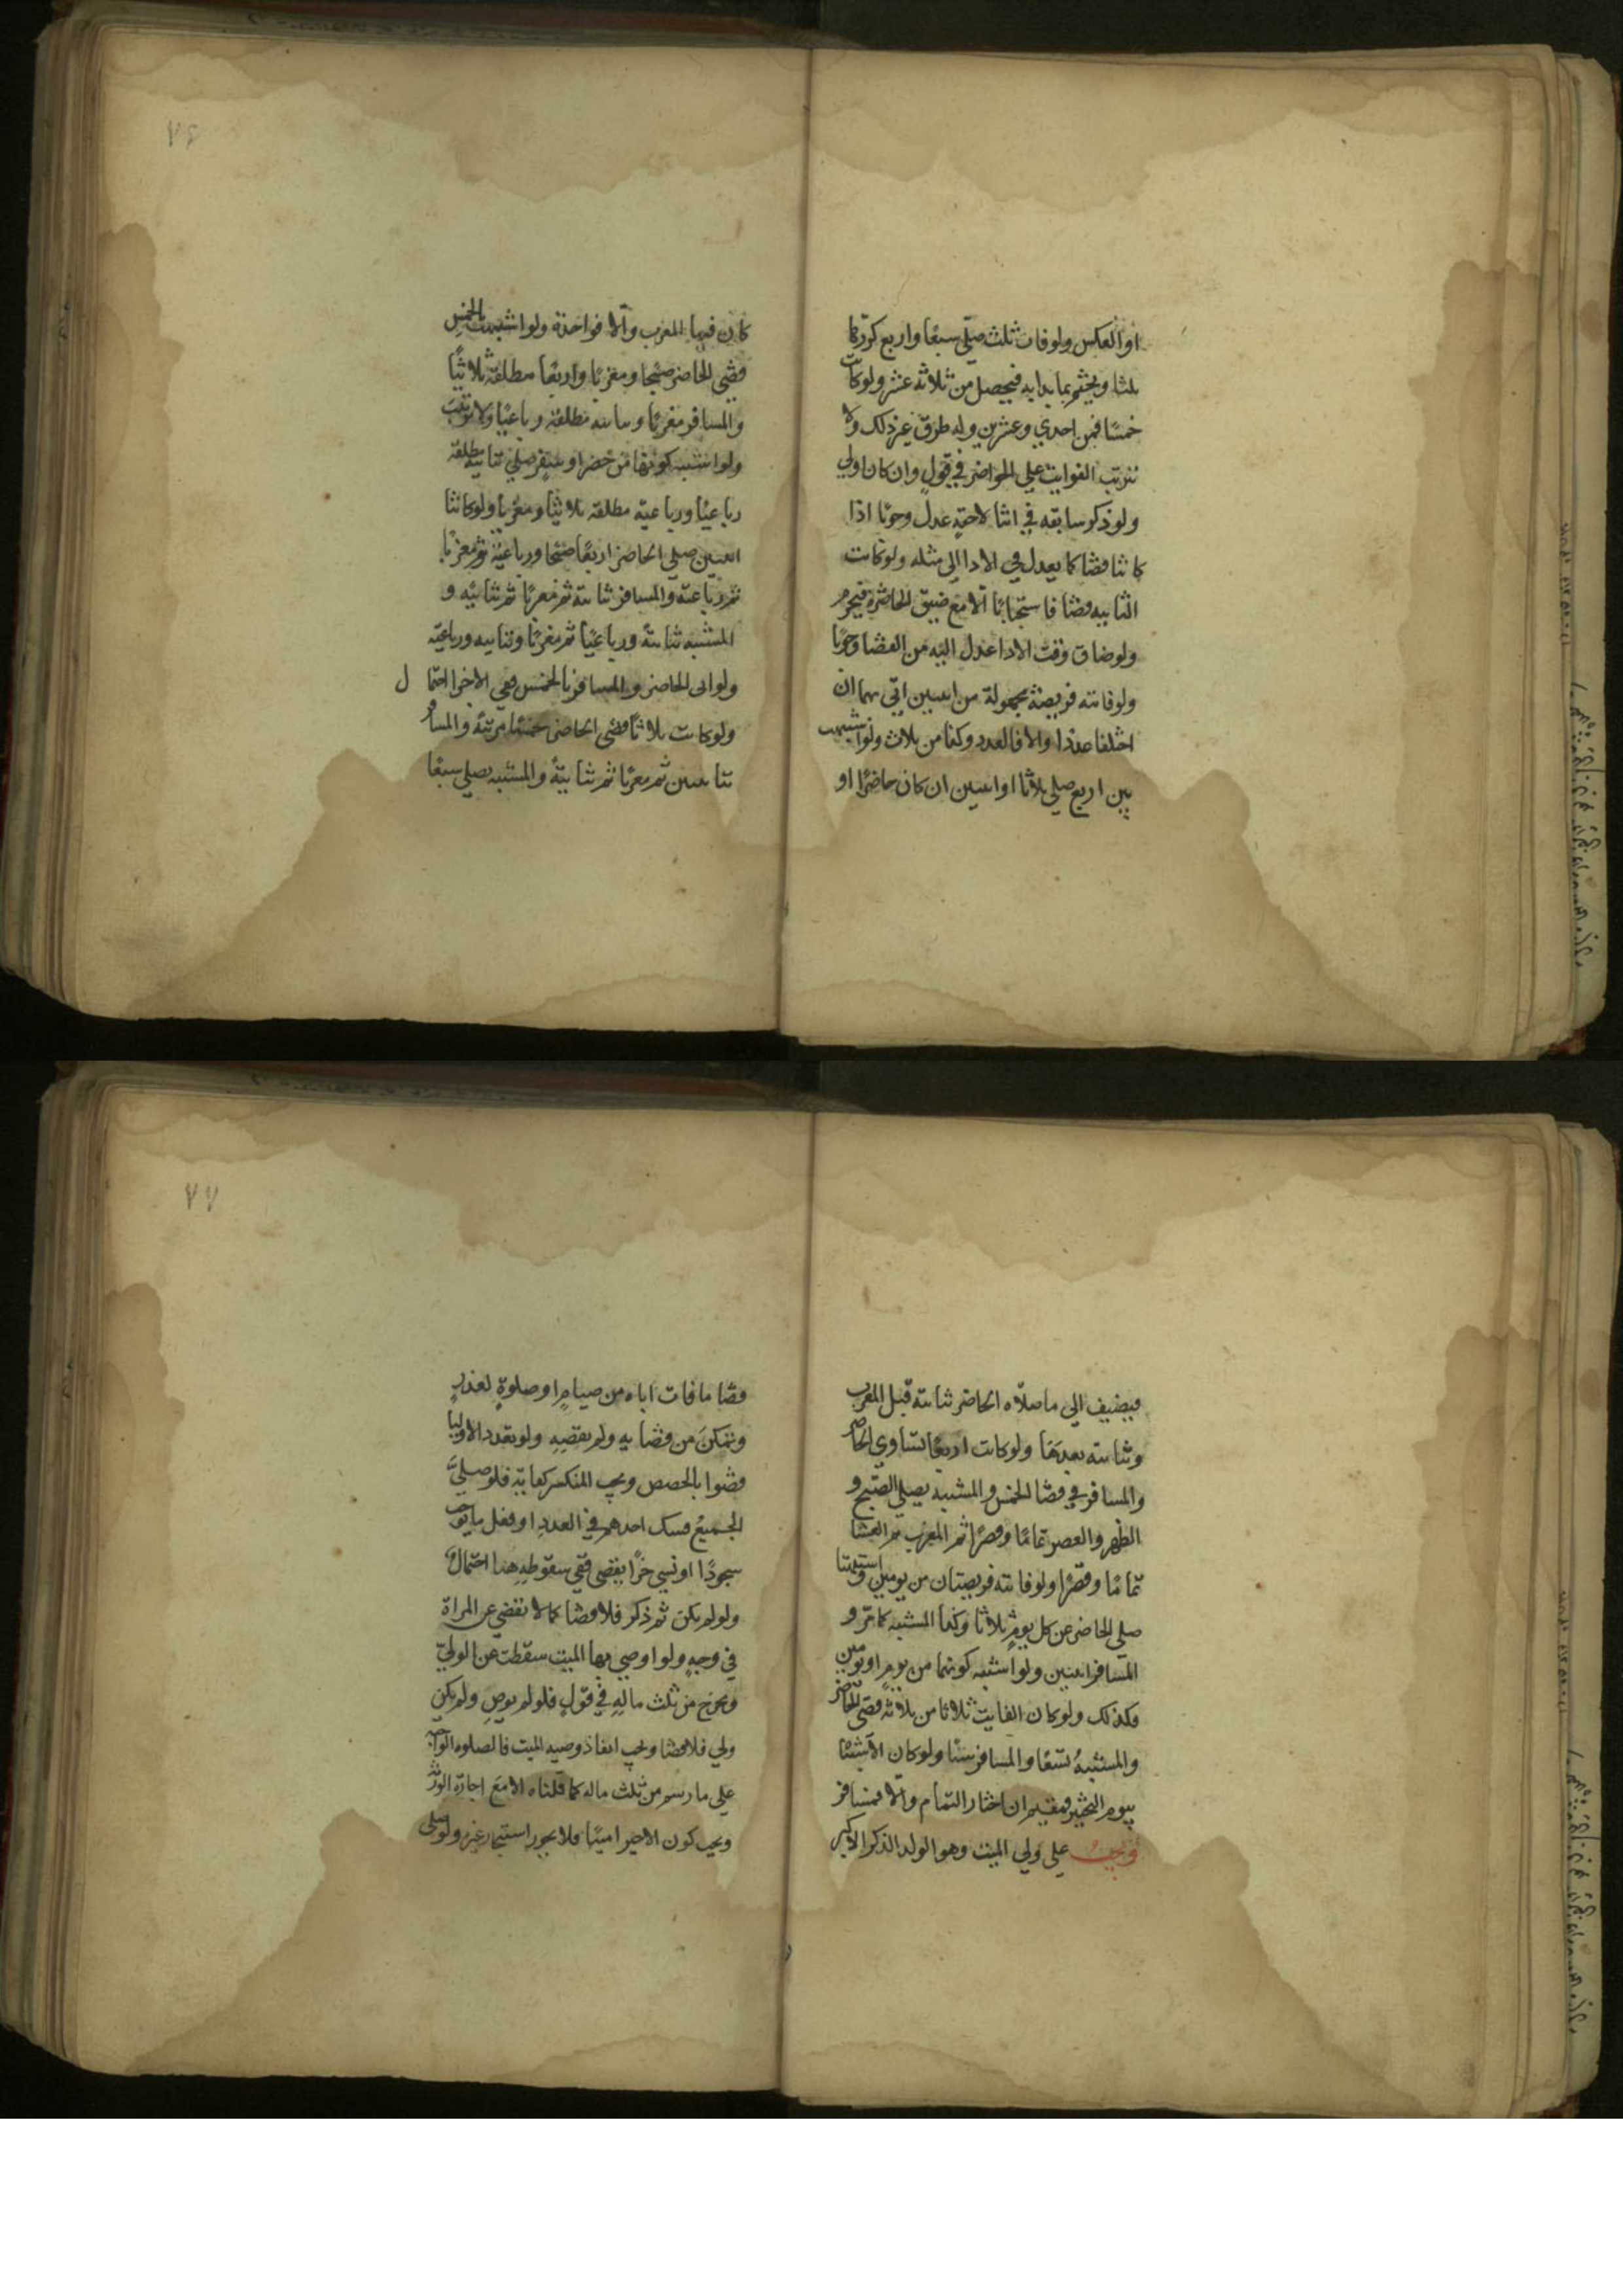 او العكس ولو فات ثلث صلّى سبعًا واربع كرّرها
ثلثا ويختم بما بدا به فيحصل من ثلاثه عشر ولو كانت
خمسًا فمن احدي وعشرين وله طرق غير ذلك ولا
تترتب الفوايت علي الحواضر في قولٍ وان كان اولي
ولو ذكر سابقه في اثنا لاحقةٍ عدل وجوبًا اذا
كانتا قضا كما يعدل في الادا الي مثله ولو كانت
الثانيه قضا فاستحبابًا الا مع ضيق الحاضرة فيحرم
ولو ضاق وقت الادا عدل اليه من القضا وجوبًا
ولو فاتته فريضة مجهولة من اثنين اتي بهما ان
اختلفا عددا والا فالعدد وكذا من ثلاث ولو اشتبهت
بين اربع صلي ثلاثا او اثنين ان كان حاضرًا او
٧٤
كان فيها المغرب والّا فواحدة ولو اشتبهت الخمس
قضي الحاضر صبحا ومغربًا واربعًا مطلقة ثلاثيًا
والمسافر مغربًا وثنائيه مطلقة رباعيًا ولا ترتيب
ولو اشتبه كونها من حضر او سفر صلي ثنائيه مطلقة
رباعيًا ورباعية مطلقة ثلاثيًا ومغربا ولو كانتا
اثنين صلي الحاضر اربعًا صبحا ورباعية ثم مغربًا
ثم رباعية والمسافر ثنائية ثم مغربًا ثم ثنائية و
المشتبه ثنائية ورباعيًا ثم مغربًا وثنائيه ورباعيّه
ولو اتى الحاضر والمسافر بالخمس ففي الاجزا احتمال
ولو كانت ثلاثًا قضى الحاضر خمسًا مرتبة والمسافر
ثنائيتين ثم مغربًا ثم ثنائية والمشتبه يصلي سبعًا
فيضيف الي ما صلّاه الحاضر ثنائية قبل المغرب
وثنائية بعدها ولو كانت اربعًا تساوي الحاضر
والمسافر في قضا الخمس والمشتبه يصلي الصبح و
الظهر والعصر تمامًا وقصرًا ثم المغرب ثم العشا
تمامًا وقصرًا ولو فاتته فريضتان من يومين واشتبهتا
صلي الحاضر عن كل يومٍ ثلاثا وكذا المشتبه كما مرّ و
المسافر اثنين ولو اشتبه كونهما من يومٍ او يومين
فكذلك ولو كان الفايت ثلاثا من ثلاثة قضى الحاضر
والمشتبهُ تسعًا والمسافر ستًا ولو كان الاشتباه
بيوم التخيير فمقيم ان اختار التمام والا فمسافر
ويجب على ولي الميت وهو الولد الذكر الاكبر
٧٧
قضا ما فات اباه من صيامٍ او صلوةٍ لعذرٍ
وتمكّن من قضايه ولم يقضِهِ ولو تعدد الاوليا
قضوا بالحصص ويجب المنكسر كفاية فلو صلى
الجميع فشك احدهم في العدد او فعل ما يوجب
سجودًا او نسي جزًا يقضى ففي سقوطه هنا احتمال
ولو لم يكن ثم ذكر فلا قضا كما لا يقضي عن المراة
في وجهٍ ولو اوصي بها الميت سقطت عن الوليّ
وتخرج من ثلث مالهِ في قولٍ فلو لم يوصِ ولم يكن
ولي فلا قضا ويجب انفاذ وصيه الميت فالصلوه الواجبه
علي ما رسم من ثلث ماله كما قلناه الا مع اجازة الورثه
ويجب كون الاجير امينًا فلا يجوز استيجار غيره ولو صلى